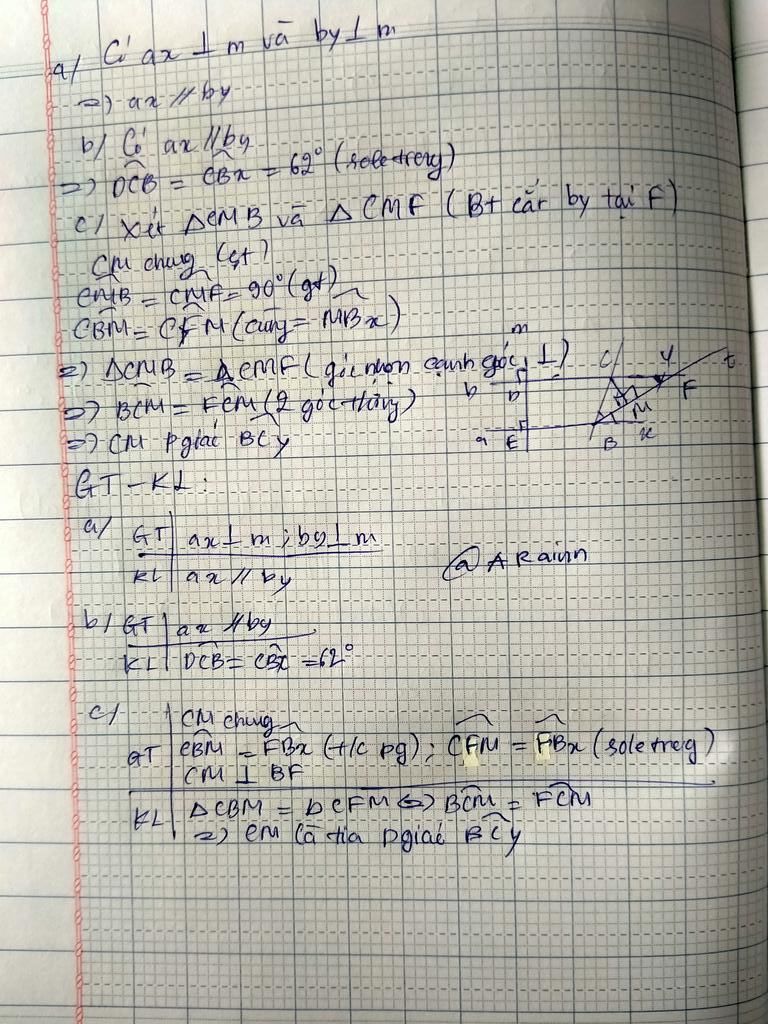 a/ Có ax ⊥ m và by ⊥ m
=> ax // by
b/ Có ax // by
=> DCB = CBx = 62° (sole trong)
c/ Xét ΔCMB và ΔCMF (Bt cắt by tại F)
CM chung (gt)
CMB = CMF = 90° (gt)
CBM = CFM (cùng = MBx)
=> ΔCMB = ΔCMF (góc nhọn cạnh góc ⊥)
=> BCM = FCM (2 góc)
=> CM pgiác BCy
m
C y t
b D F
M
a E B x
GT - KL:
a/ GT | ax ⊥ m ; by ⊥ m
KL | ax // by
@ARainn
b/ GT | ax // by
KL | DCB = CBx = 62°
c/ CM chung
GT | CBM = FBx (t/c pg) ; CFM = FBx (sole trog)
CM ⊥ BF
KL | ΔCBM = ΔCFM <=> BCM = FCM
=> CM là tia pgiác BCy